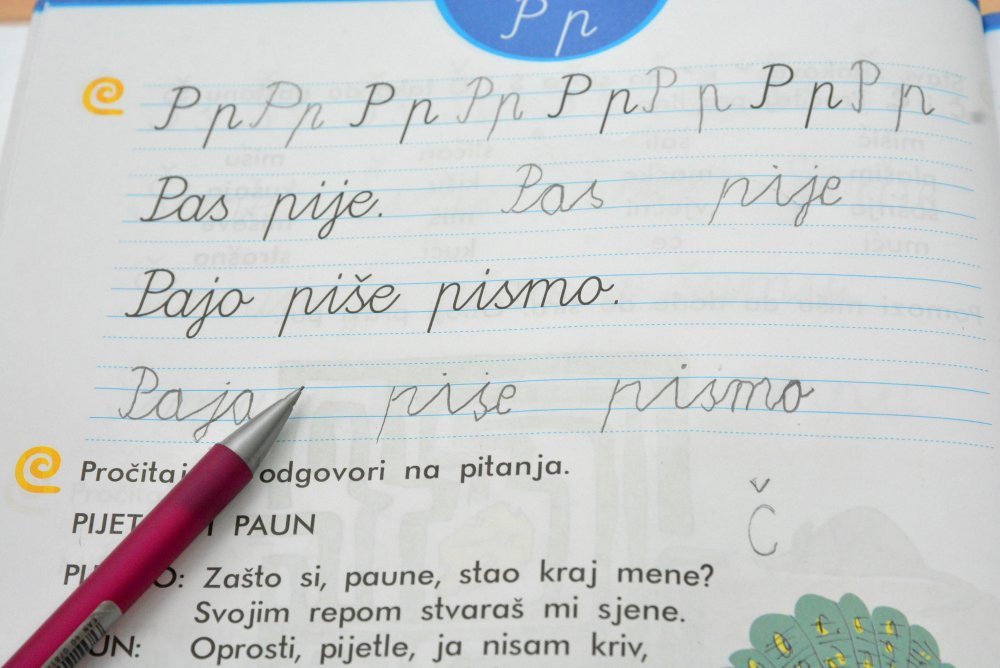 P p
P p P p P p P p P p P p P p P p
Pas pije. Pas pije
Pajo piše pismo.
Pajo piše pismo
Pročitaj odgovori na pitanja.
I PAUN
Č
Zašto si, paune, stao kraj mene?
Svojim repom stvaraš mi sjene.
Oprosti, pijetle, ja nisam kriv,